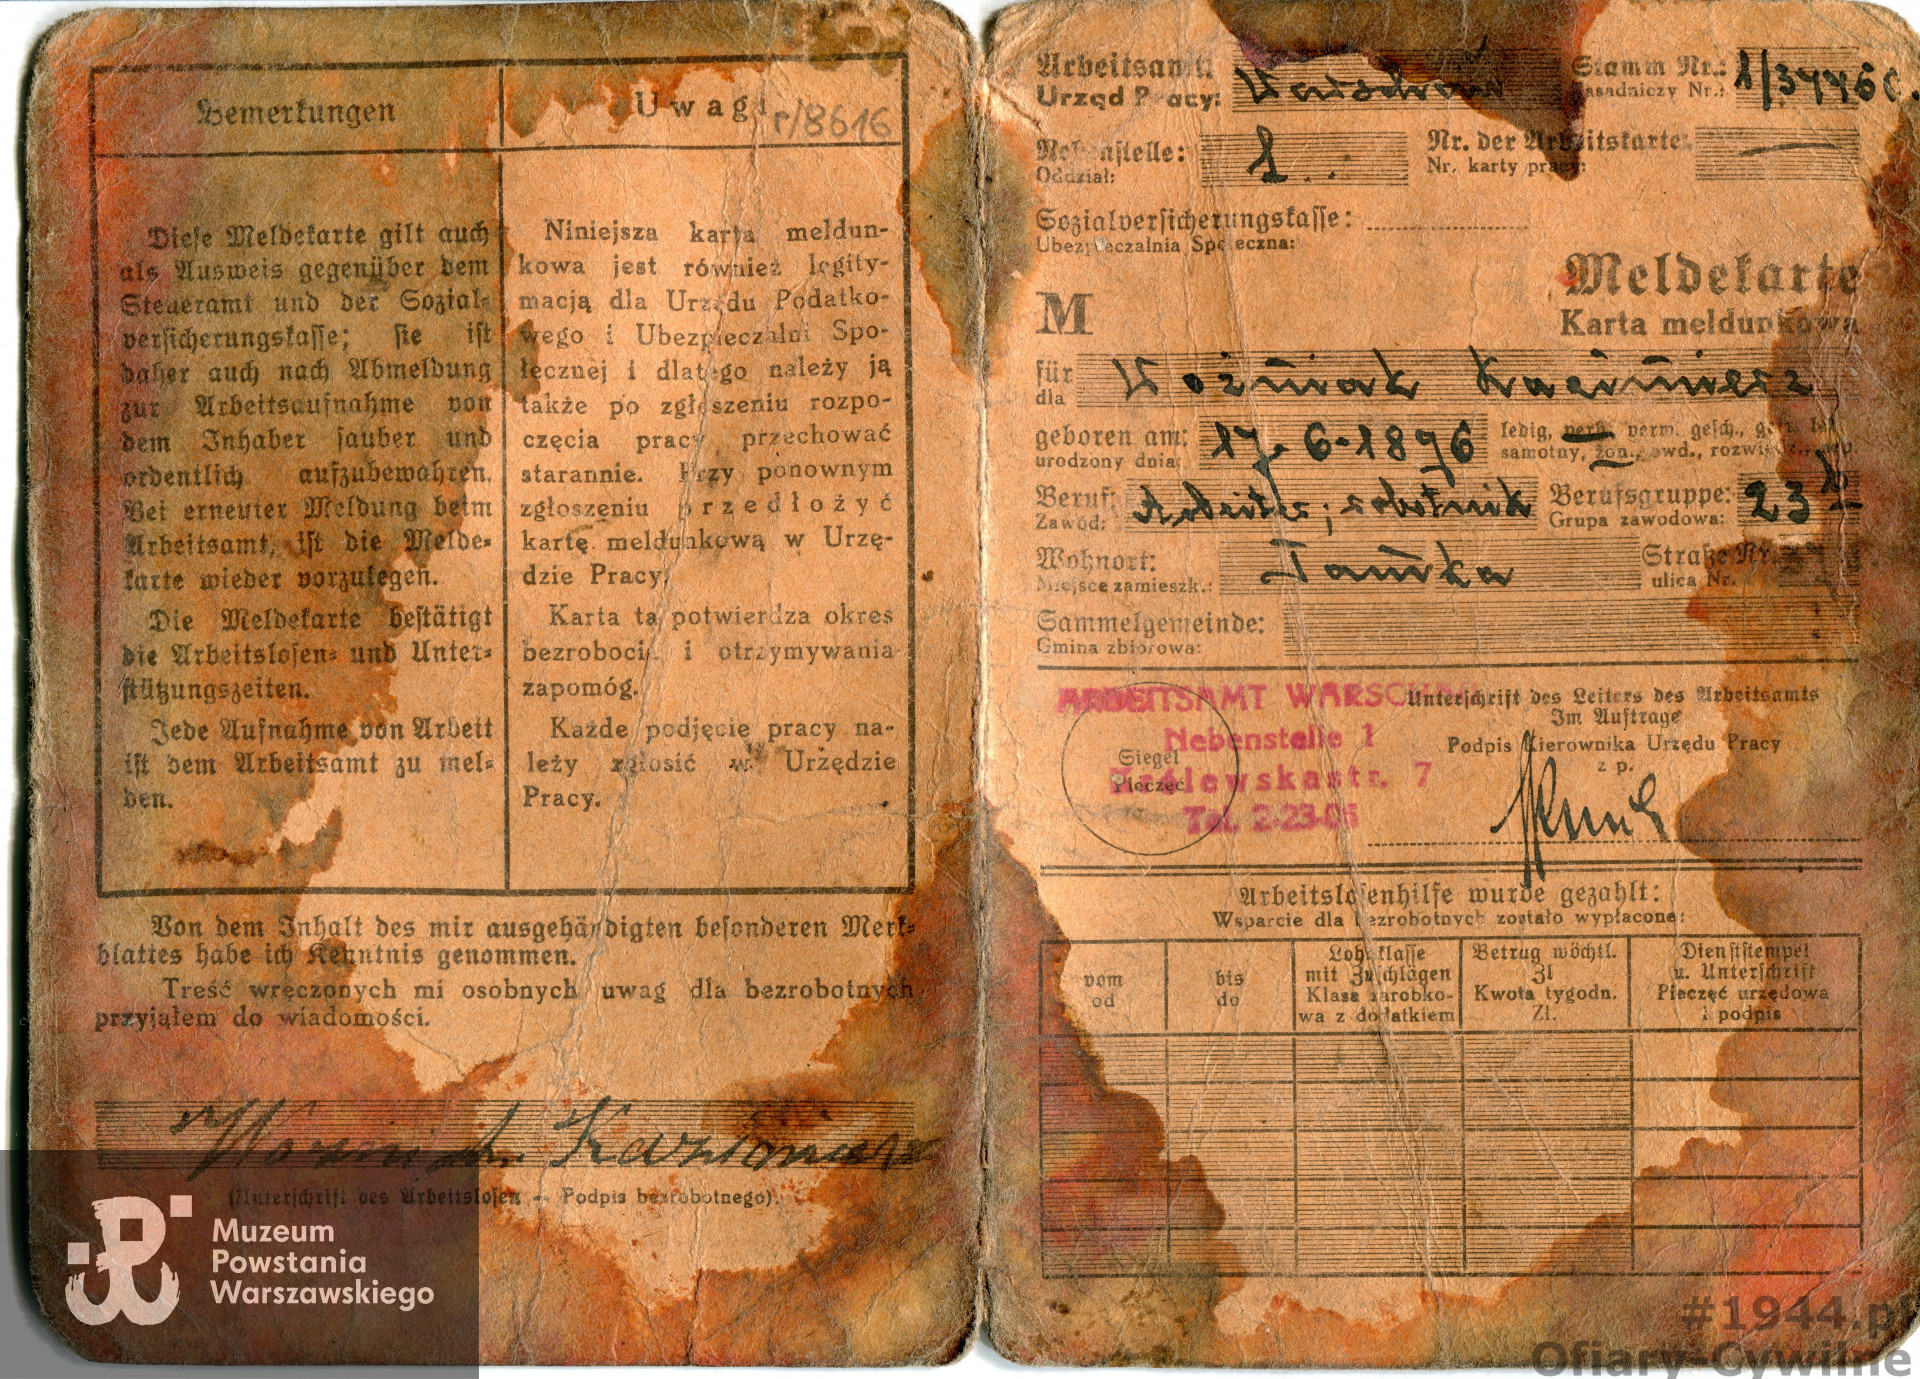 Bemerkungen
Uwagi
r/8616
Diese Meldekarte gilt auch
als Ausweis gegenüber dem
Steueramt und der Sozial-
versicherungskasse; sie ist
daher auch nach Abmeldung
zur Arbeitsaufnahme von
dem Inhaber sauber und
ordentlich aufzubewahren.
Bei erneuter Meldung beim
Arbeitsamt, ist die Melde-
karte wieder vorzulegen.
Die Meldekarte bestätigt
die Arbeitslosen- und Unter-
stützungszeiten.
Jede Aufnahme von Arbeit
ist dem Arbeitsamt zu mel-
den.
Niniejsza karta meldun-
kowa jest również legity-
macją dla Urzędu Podatko-
wego i Ubezpieczalni Spo-
łecznej i dlatego należy ją
także po zgłoszeniu rozpo-
częcia pracy przechować
starannie. Przy ponownym
zgłoszeniu przedłożyć
kartę meldunkową w Urzę-
dzie Pracy.
Karta ta potwierdza okres
bezrobocia i otrzymywania
zapomóg.
Każde podjęcie pracy na-
leży zgłosić w Urzędzie
Pracy.
Von dem Inhalt des mir ausgehändigten besonderen Merk-
blattes habe ich Kenntnis genommen.
Treść wręczonych mi osobnych uwag dla bezrobotnych
przyjąłem do wiadomości.
Woźniak Kazimierz
(Unterschrift des Arbeitslosen — Podpis bezrobotnego).
Muzeum
Powstania
Warszawskiego
Arbeitsamt: Warschau Stamm Nr.: 1/37460.
Urząd Pracy: Zasadniczy Nr.:
Nebenstelle: 1 Nr. der Arbeitskarte:
Oddział: Nr. karty pracy:
Sozialversicherungskasse:
Ubezpieczalnia Społeczna:
M
Meldekarte
Karta meldunkowa
für Woźniak Kazimierz
dla
geboren am: 17.6.1896 ledig, verh., verw. gesch., getr. leb.
urodzony dnia: samotny, żon., owd., rozwiedz., sep.
Beruf: Arbeiter; robotnik Berufsgruppe: 23
Zawód: Grupa zawodowa:
Wohnort: Tamka Straße Nr.
Miejsce zamieszk.: ulica Nr.
Sammelgemeinde:
Gmina zbiorowa:
ARBEITSAMT WARSCHAU
Nebenstelle 1
Królewskastr. 7
Tel. 2-23-05
Siegel
Pieczęć
Unterschrift des Leiters des Arbeitsamts
Im Auftrage
Podpis Kierownika Urzędu Pracy
z p.
Arbeitslosenhilfe wurde gezahlt:
Wsparcie dla bezrobotnych zostało wypłacone:
vom
od
bis
do
Lohnklasse
mit Zuschlägen
Klasa zarobko-
wa z dodatkiem
Betrug wöchtl.
Zl
Kwota tygodn.
Zł.
Dienststempel
u. Unterschrift
Pieczęć urzędowa
i podpis
#1944.pl
Ofiary-Cywilne